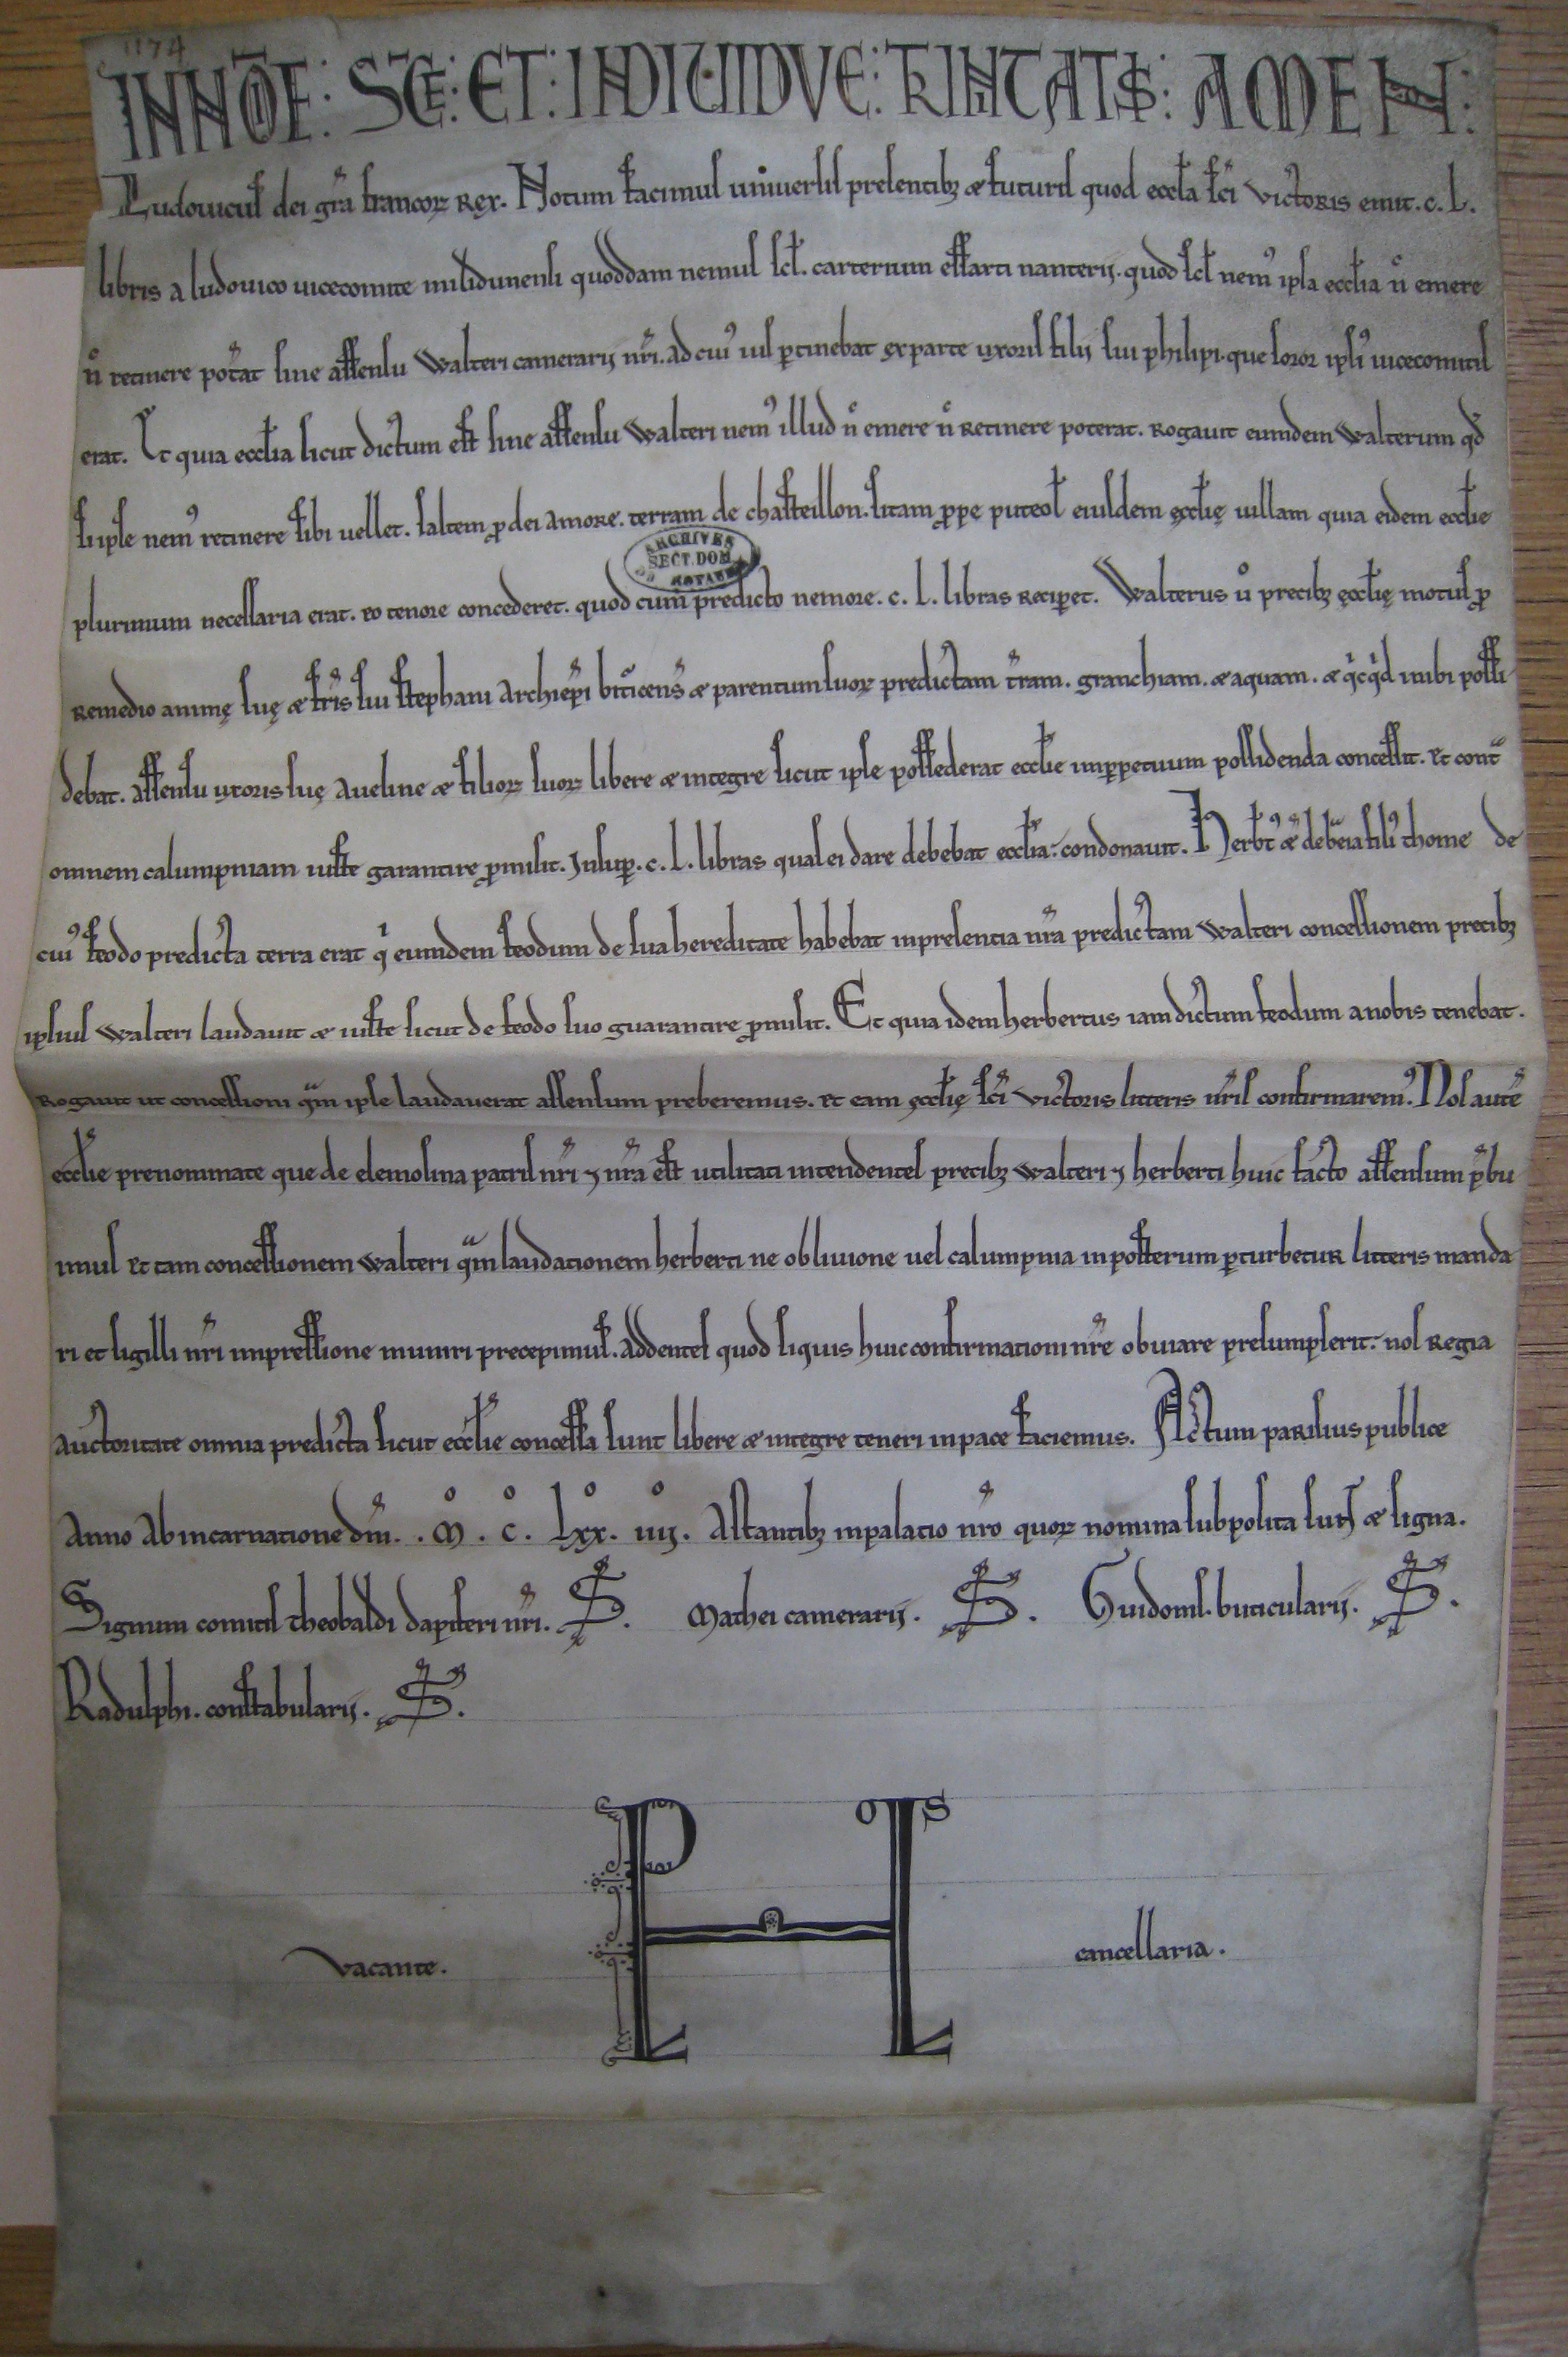 1174
INNOE: SCE: ET: INDIVIDVE: TRINITATIS: AMEN:
Ludouicus dei gra francor Rex. Notum facimus uniuersis presentib; & futuris quod eccla sci Victoris emit. c. L.
libris a ludouico uicecomite milidunensi quoddam nemus scl. carterium essarti nanterii. quod scl nem' ipsa ecclia n emere
n retinere potat sine assensu Walteri camerarii nri. ad cui' ius ptinebat ex parte uxoris filii sui philipi. que soror ipsi' uicecomitis
erat. Et quia ecclia sicut dictum est sine assensu Walteri nem' illud n emere n Retinere poterat. Rogauit eumdem Walterum qd
si ipse nem' retinere sibi uellet. saltem p dei amore. terram de chasteillon. sitam ppe puteol eiusdem ęcclię uillam quia eidem ecclie
plurimum necessaria erat. eo tenore concederet. quod cum predicto nemore. c. L. libras Reciperet. Walterus u precib; ęcclię motus p
ARCHIVES
SECT. DOM
Remedio animę suę & fris sui stephani archiepi bituricens & parentum suor predictam tram. granchiam. & aquam. & qcqd inibi possi
debat. assensu uxoris suę aueline & filior suor libere & integre sicut ipse possederat ecclie imperpetuum possidenda concessit. Et cont
omnem calumpniam iuste garantire pmisit. Insup. c. L. libras quas ei dare debebat ecclia: condonauit. Herbt' & filii' thome de
cui' feodo predicta terra erat q eumdem feodum de sua hereditate habebat in presentia nra predictam Walteri concessionem precib;
ipsius Walteri laudauit & iuste sicut de feodo suo guarantire pmisit. Et quia idem herbertus iamdictum feodum a nobis tenebat.
Rogauit ut concessioni qm ipse laudauerat assensum preberemus. Et eam ęcclię sci Victoris litteris nris confirmarem'. Nos aute
ecclie prenominate que de elemosina patris nri 7 nra est utilitati intendentes precib; Walteri 7 herberti huic facto assensum pbu
imus Et tam concessionem Walteri qm laudationem herberti ne obliuione uel calumpnia in posterum pturbetur litteris manda
ri et sigilli nri impressione muniri precepimus. addentes quod siquis huic confirmationi nre obuiare presumpserit: nos Regia
auctoritate omnia predicta sicut ecclie concessa sunt libere & integre teneri in pace faciemus. Actum parisius publice
Anno Ab incarnatione dni. M. C. Lxx. iiij. Astantib; in palatio nro quor nomina subposita sunt & signa.
Signum comitis theobaldi dapiferi nri. S. Mathei camerarii. S. Guidonis. buticularii. S.
Radulphi. constabularii. S.
vacante. cancellaria.